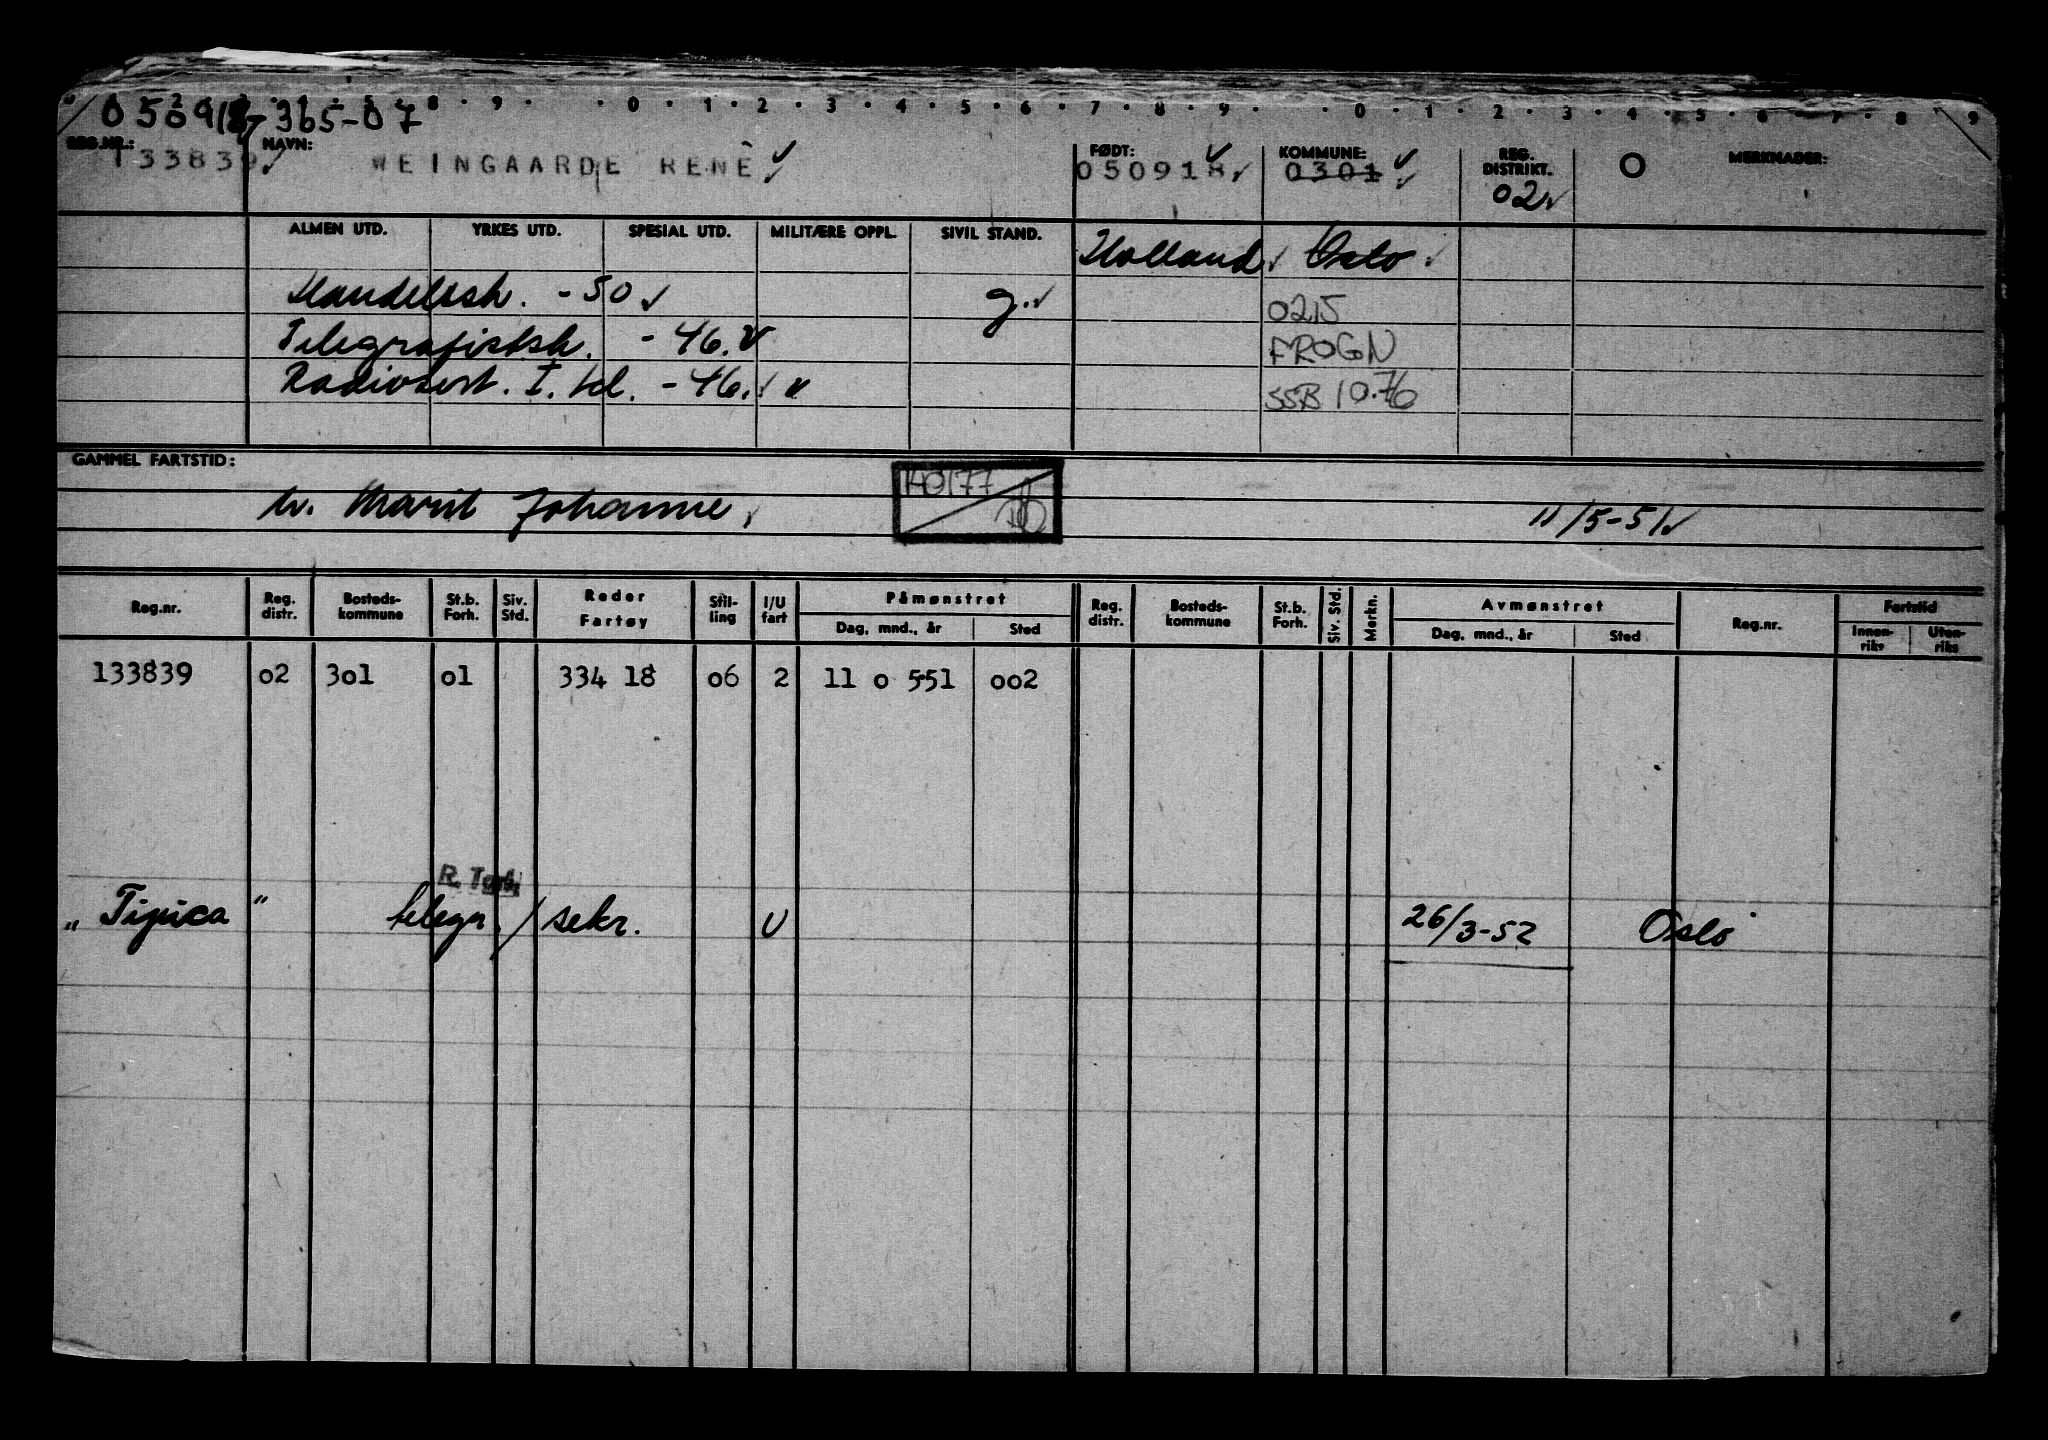 050918-365-07
REG.NR.: 133839 NAVN: WEINGAARDE RENÈ FØDT: 050918 KOMMUNE: 0301 REG. DISTRIKT. 02 O MERKNADER:
ALMEN UTD. YRKES UTD. SPESIAL UTD. MILITÆRE OPPL. SIVIL STAND. Holland Oslo
Handelssk. -50 g. 0215
Telegrafistsk. -46. FROGN
Radiosert. I. kl. -46. " SSB 10.76
GAMMEL FARTSTID:
140177
w. Marit Johanne 11/5-51
Reg.nr. Reg. distr. Bosteds- kommune St.b. Forh. Siv. Std. Reder Fartøy Stil- ling I/U fart Påmønstret Dag, mnd., år Sted Reg. distr. Bosteds- kommune St.b. Forh. Siv. Std. Merkn. Avmønstret Dag, mnd., år Sted Reg.nr. Fartstid Innen- riks Uten- riks
133839 02 301 01 334 18 06 2 11 0 551 002
"Tipica" telegr./sekr. U 26/3-52 Oslo